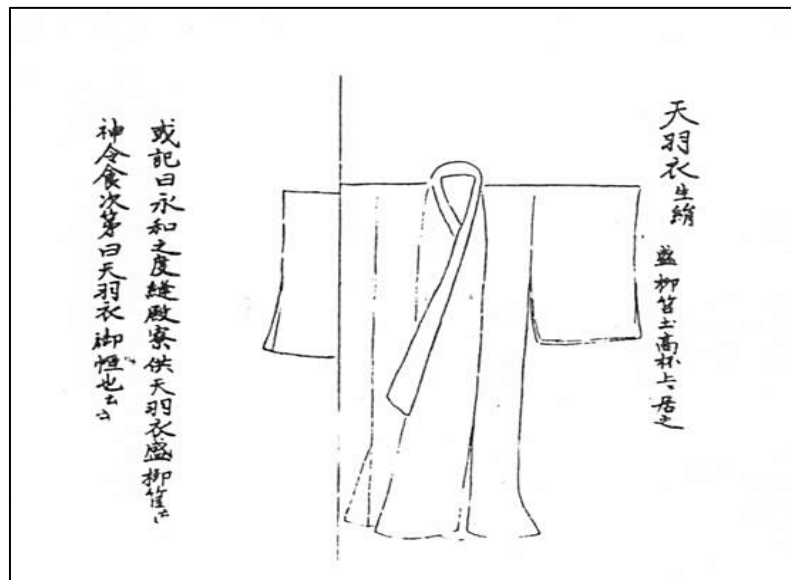 天羽衣生絹
盛柳筥土高杯上居之
或記曰永和之度縫殿寮供天羽衣盛柳筥云
神今食次第曰天羽衣御帷也云云